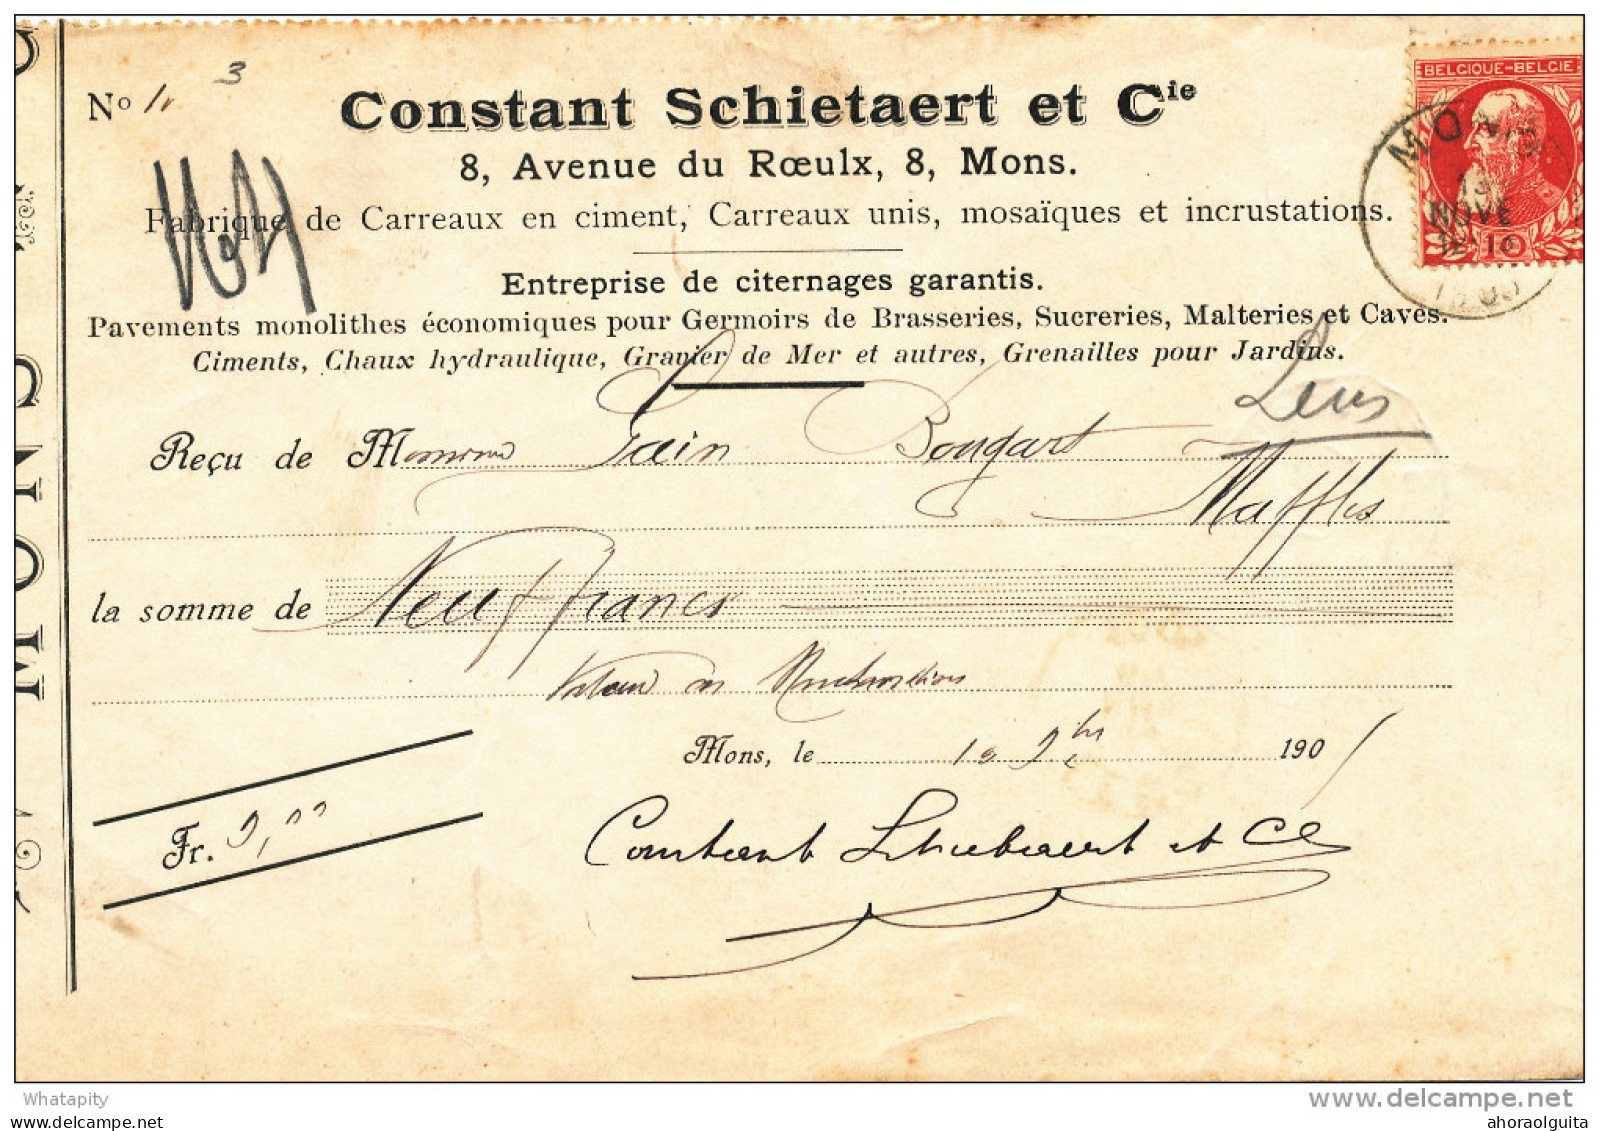 3
No
Constant Schietaert et Cie
8, Avenue du Rœulx, 8, Mons.
Fabrique de Carreaux en ciment, Carreaux unis, mosaïques et incrustations.
Entreprise de citernages garantis.
Pavements monolithes économiques pour Germoirs de Brasseries, Sucreries, Malteries et Caves.
Ciments, Chaux hydraulique, Gravier de Mer et autres, Grenailles pour Jardins.
BELGIQUE-BELGIE
MONS
13
NOVE
10
Lens
Reçu de Monsieur Bougart
Maffles
la somme de Neuf francs
Valeur en Marchandises
Mons, le 190
Fr. 9,00
Constant Schietaert et Cie
CNOM
Whatapity
www.delcampe.net
ahoraolguita